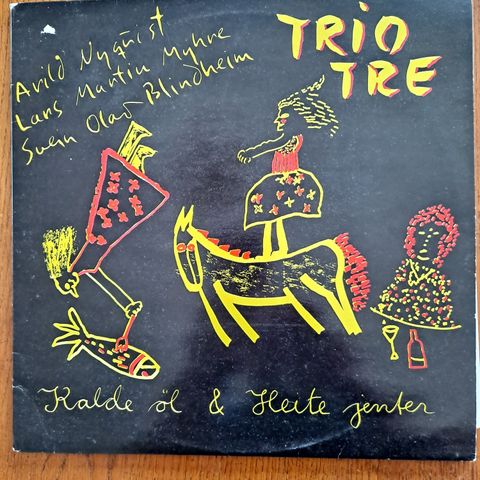 Arild Nyquist
Lars Martin Myhre
Svein Olav Blindheim
TRIO
TRE
Kalde öl & Heite jenter